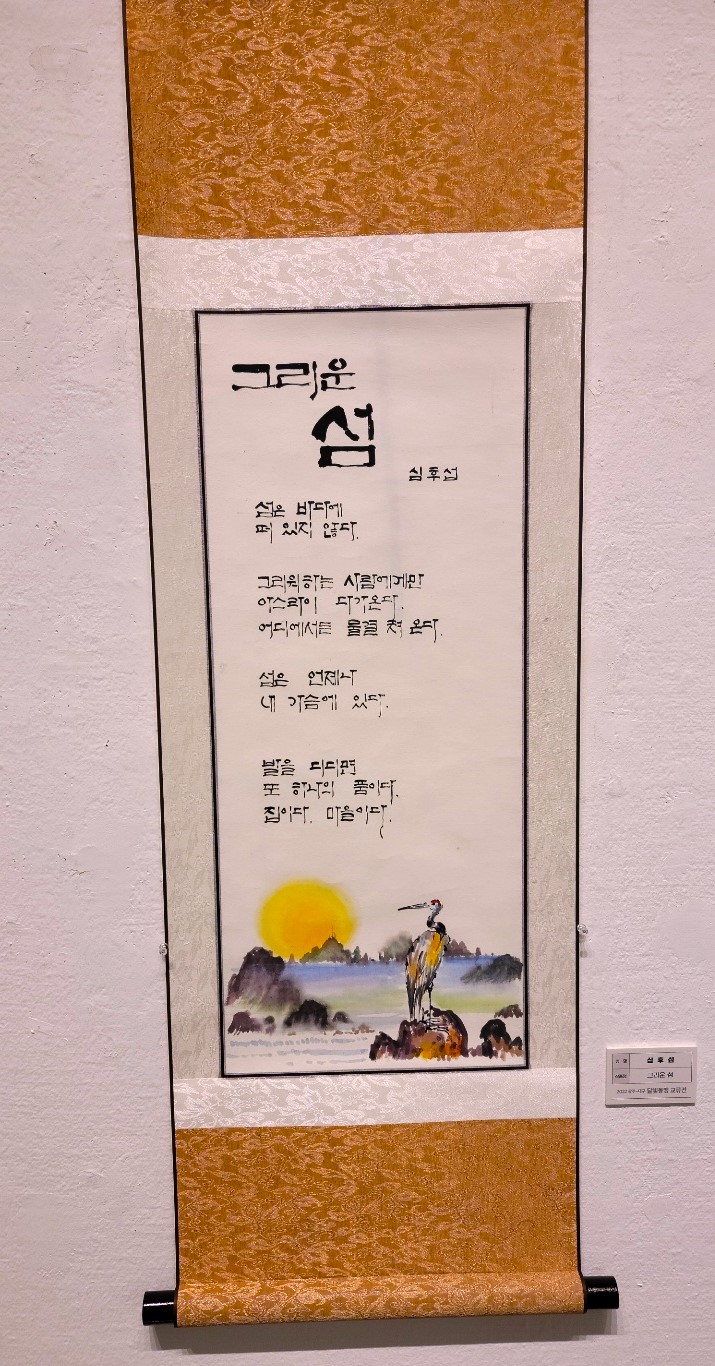 그리운
섬
심후섭
섬은 바다에
떠 있지 않다.
그리워하는 사람에게만
아스라이 다가온다.
어디에서든 물결 쳐 온다.
섬은 언제나
내 가슴에 있다.
발을 디디면
또 하나의 품이다.
집이다. 마을이다.
심후섭
그리운 섬
달빛동맹 교류전